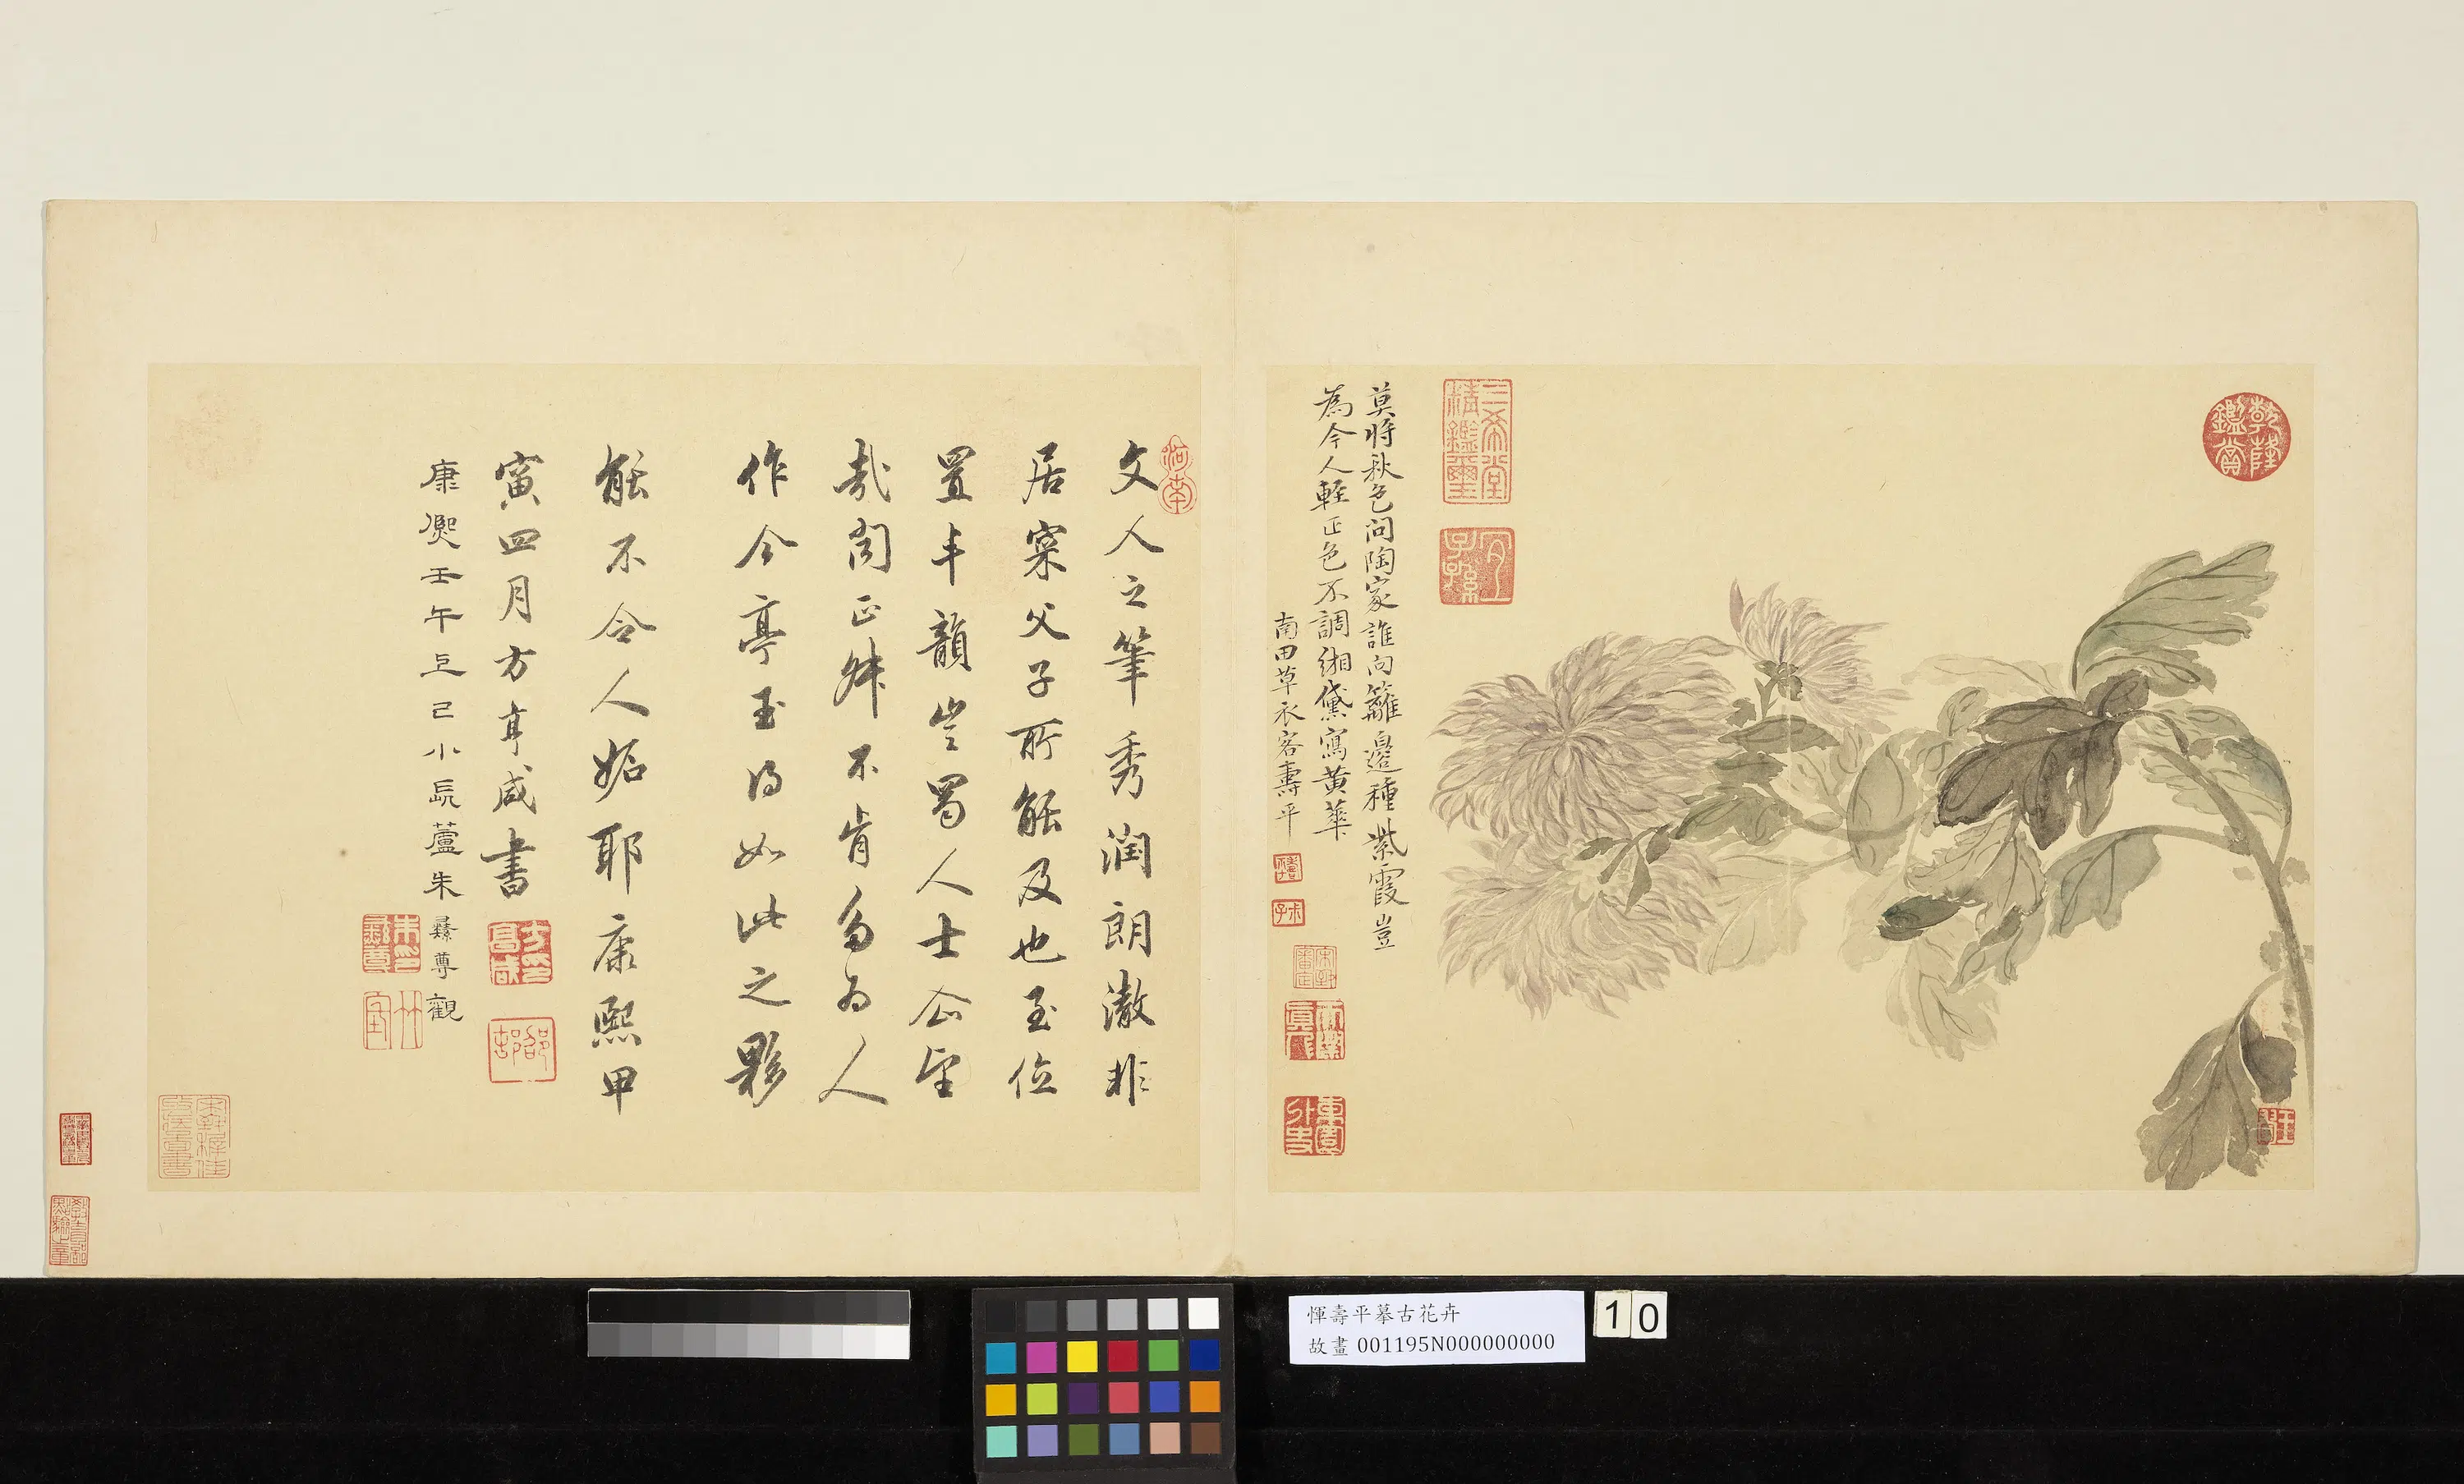 莫將秋色問陶家誰向籬邊種紫霞豈
為今人輕正色不調緗黛寫黃華
南田草衣客壽平
乾隆鑑賞
三希堂精鑑璽
宜子孫
文人之筆秀潤朗澈非
居寀父子所能及也至位
置丰韻豈蜀人士企望
哉閣正叔不肯多為人
作今亭玉得如此之夥
能不令人妬耶康熙甲
寅四月方亨咸書
康熙壬午上巳小長蘆朱彝尊觀
惲壽平摹古花卉
故畫 001195N000000000
10